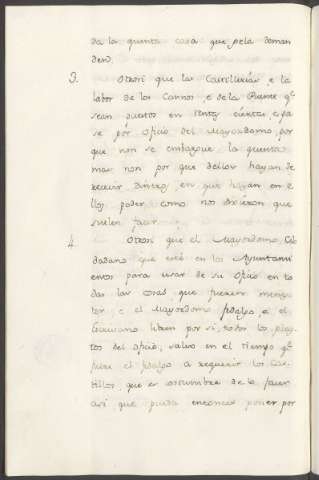 da la quenta cosa que pela deman
den.
3. Otrosí que las Carcelurias e la
labor de los Cannos e de la Puente q.e
sean puestos en renta cierta, e pa
se por oficio del Mayordomo, por
que non se embargue la quenta
mas non por que dellos hayan de
recevir dineros, en que hayan en e
llos poder como nos dixieron que
suelen facer.
4. Otrosí que el Mayordomo Cib
dadano que esté en los Ayuntami
entos para usar de su oficio en to
das las cosas que fueren menes
ter, e el Mayordomo fidalgo, e el
Escrivano libren por si, todos los pley
tos del oficio, salvo en el tiempo q.e
fuere el fidalgo a requerir los Cas
tillos que es costumbre de lo facer
asi que pueda entonces poner por